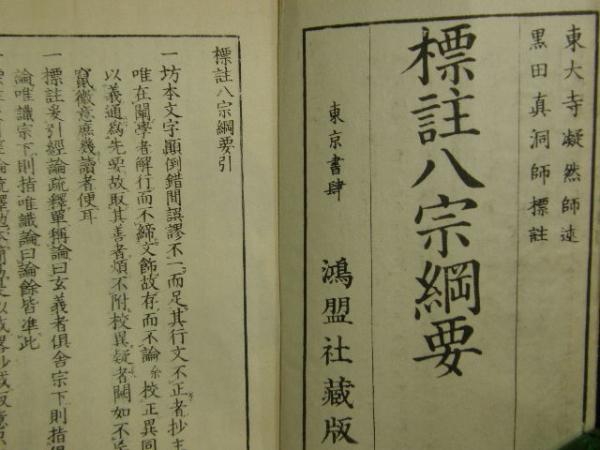 東大寺凝然師述
黒田真洞師標註
標註八宗綱要
東京書肆
鴻盟社藏版
標註八宗綱要引
一坊本文字顚倒錯間誤謬不一而足其行文不正者抄主
唯在闡學者解行而不締文飾故存而不論余校正異同
以義通為先要故取其善者煩不附校異疑者闕如不
竄徹意庶幾讀者便耳
一標註爰引經論疏釋單稱論曰玄義者俱舍宗下則指俱
論唯識宗下則指唯識論曰論餘皆準此